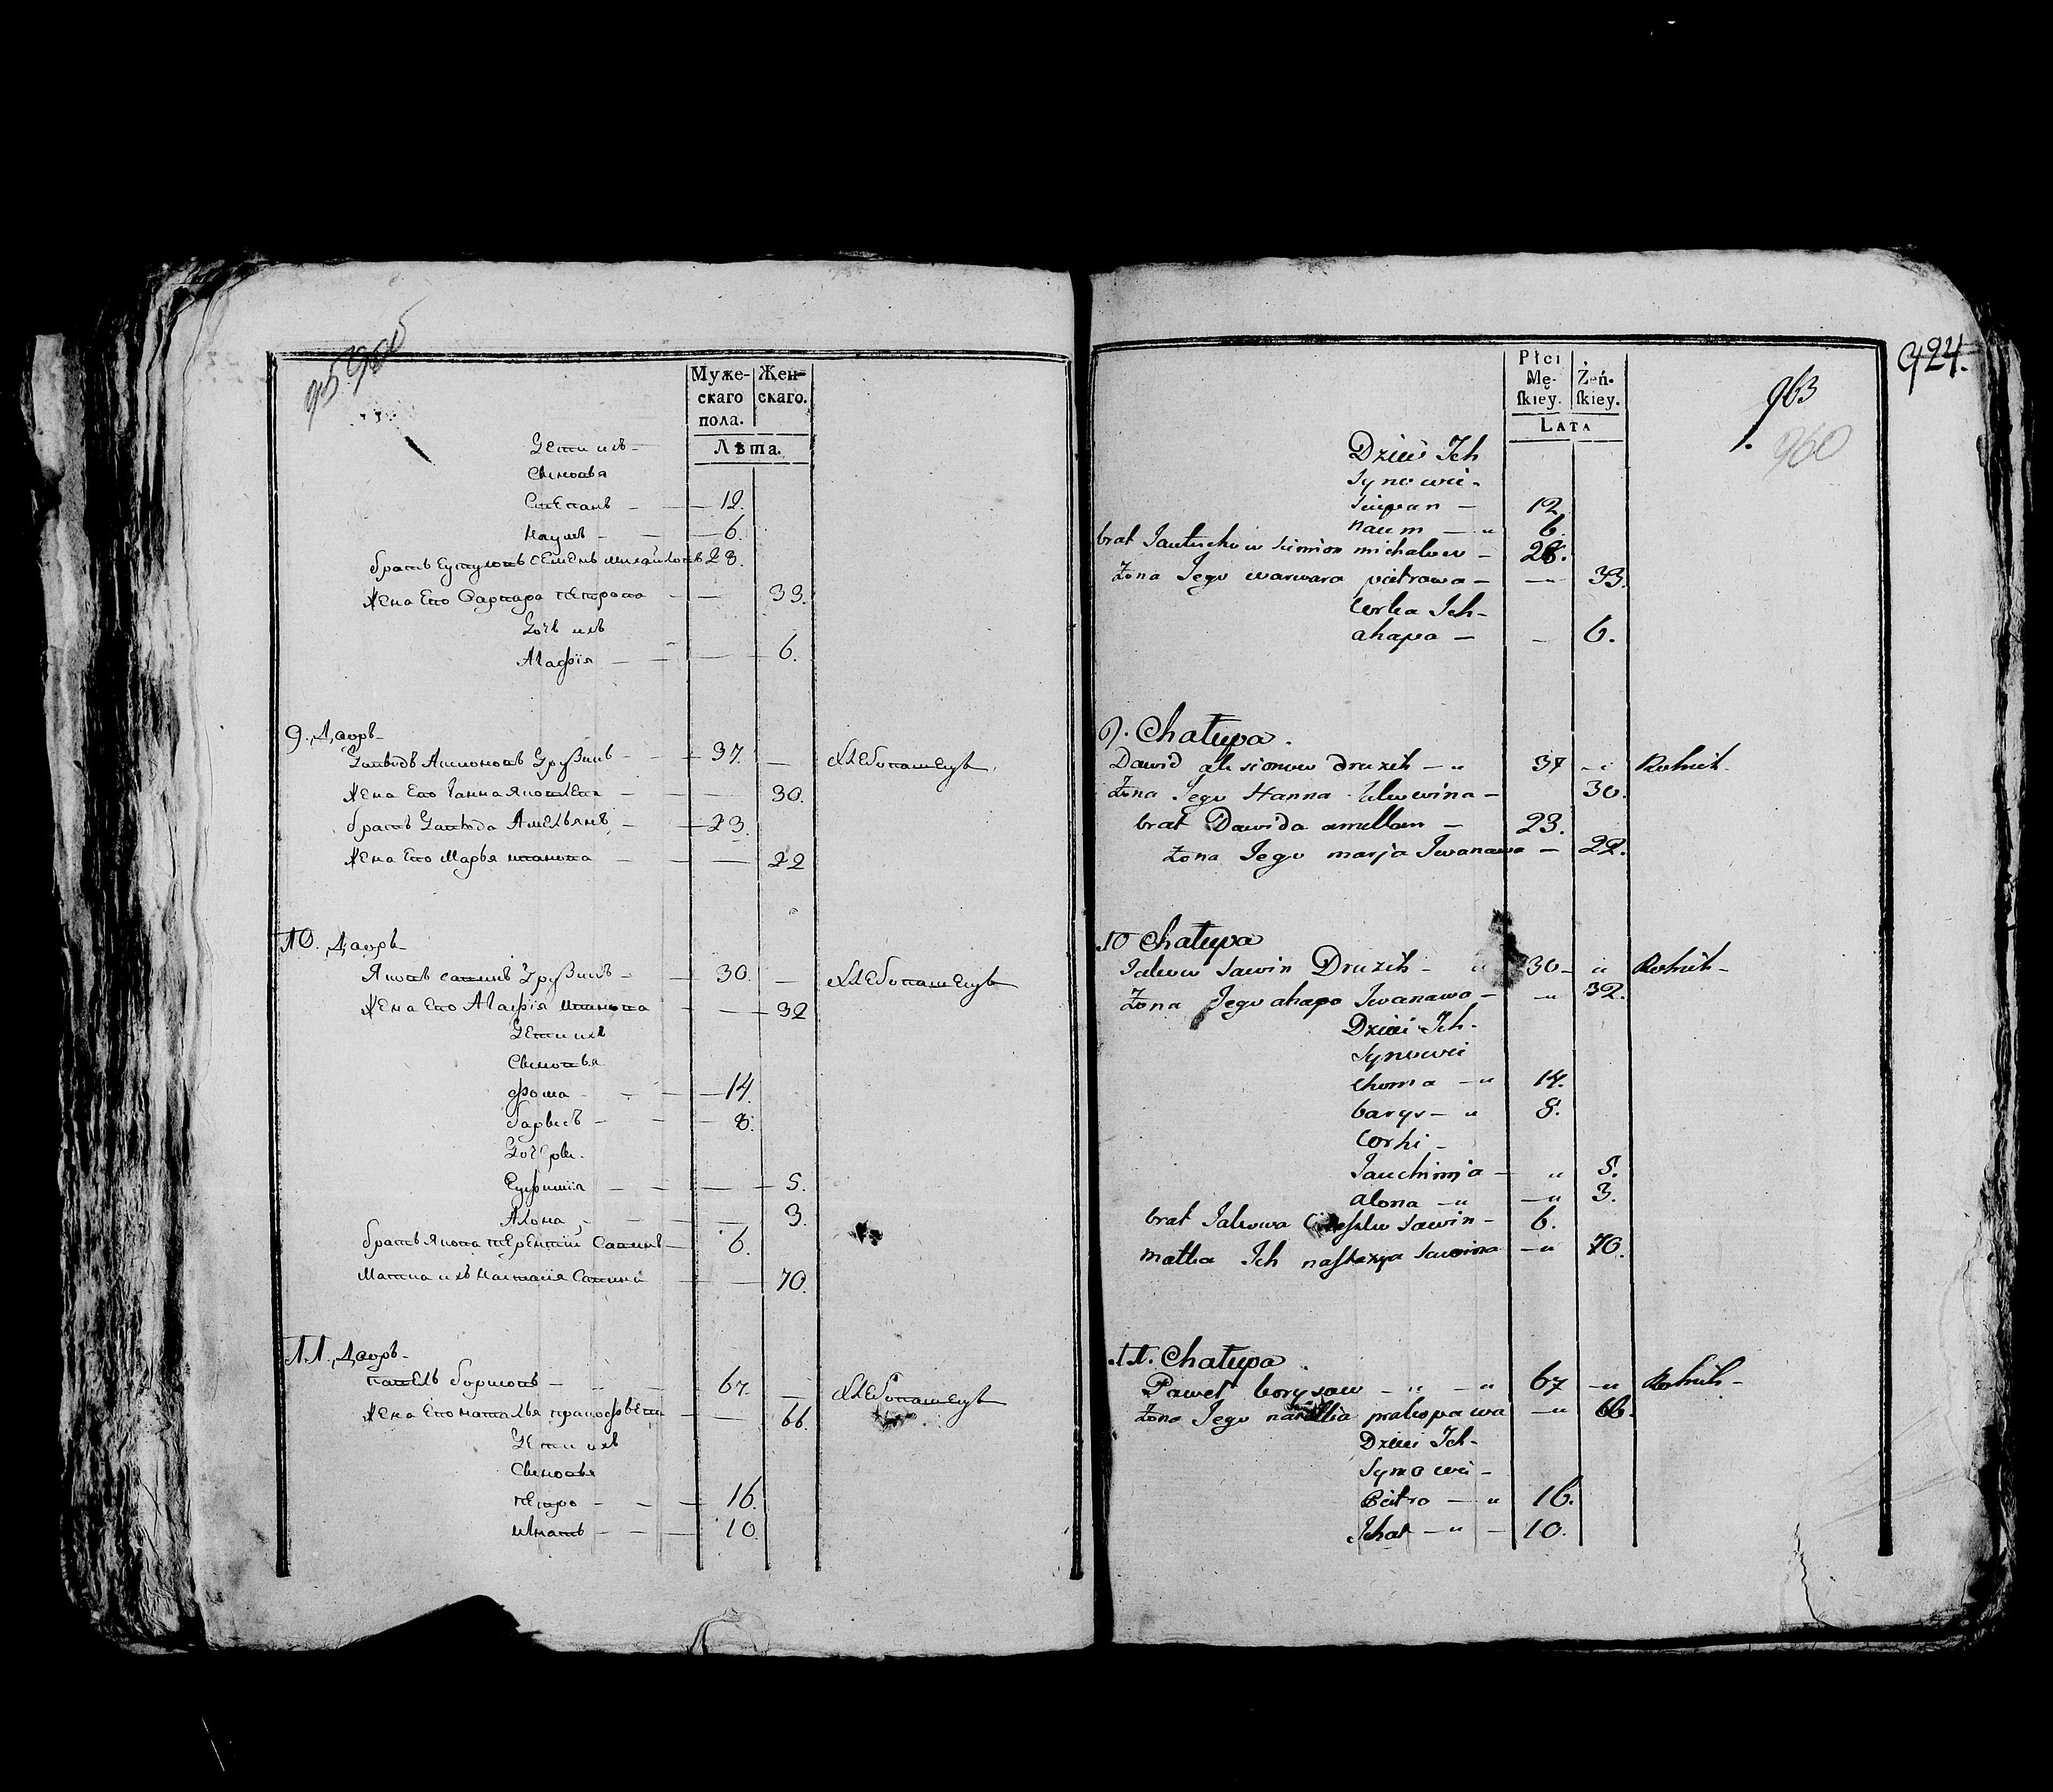 Муже-
скаго
пола.
Жен-
скаго.
Лѣта.
Дети ихъ
Сыновья
Степанъ - 12.
Наумъ - 6.
братъ Евтуховъ Семенъ Михайловъ 28.
жена Его Варвара Петрова - 33.
Дочь ихъ
Агафія - 6.
9. Дворъ
Давидъ Друзикъ - 37. - хлебопашецъ
жена Его Ганна Яковлева - 30.
братъ Давида Амельянъ - 23.
жена Его Марья Иванова - 22
10. Дворъ
Яковъ Савинъ Друзикъ - 30. - хлебопашецъ
жена Его Агафія Иванова - 32
Дети ихъ
Сыновья
Фома - 14.
Барысъ - 8.
Дочери
Еуфимія - 5.
Алона - 3.
братъ Якова Терентій Савинъ - 6.
Матка ихъ Настасія Савина - 70.
11. Дворъ
Павелъ Борисовъ - 67. - хлебопашецъ
жена Его Наталья - 66.
Дети ихъ
Сыновья
Петро - 16.
Игнатъ - 10.
Płci
Mę-
skiey.
Żeń-
skiey.
LATA
924.
963
960
Dzieci Ich
Synowie -
Sciepan - 12
Naum - 6
brat Jautuchow Simion michałow - 28.
Żona Jego warwara pietrowa - 33.
Corka Ich -
ahapa - 6.
9. Chałupa.
Dawid Druzik - 37 - Rolnik
Żona Jego Hanna - 30.
brat Dawida amellan - 23.
Żona Jego marja Iwanawa - 22.
10 Chałupa
Jakow Sawin Druzik - 30 - Rolnik -
Żona Jego ahapa Iwanawa - 32.
Dzieci Ich -
Synowie
Choma - 14.
barys - 8.
Corki -
Jauchimia - 5.
alona - 3.
brat Jakowa Sawin - 6.
matka Ich nastazya Sawina - 70.
11. Chałupa.
Paweł borysow - 67 - Rolnik -
Żona Jego natallia prakopawa - 66.
Dzieci Ich -
Synowie -
Pietro - 16.
Ihnat - 10.